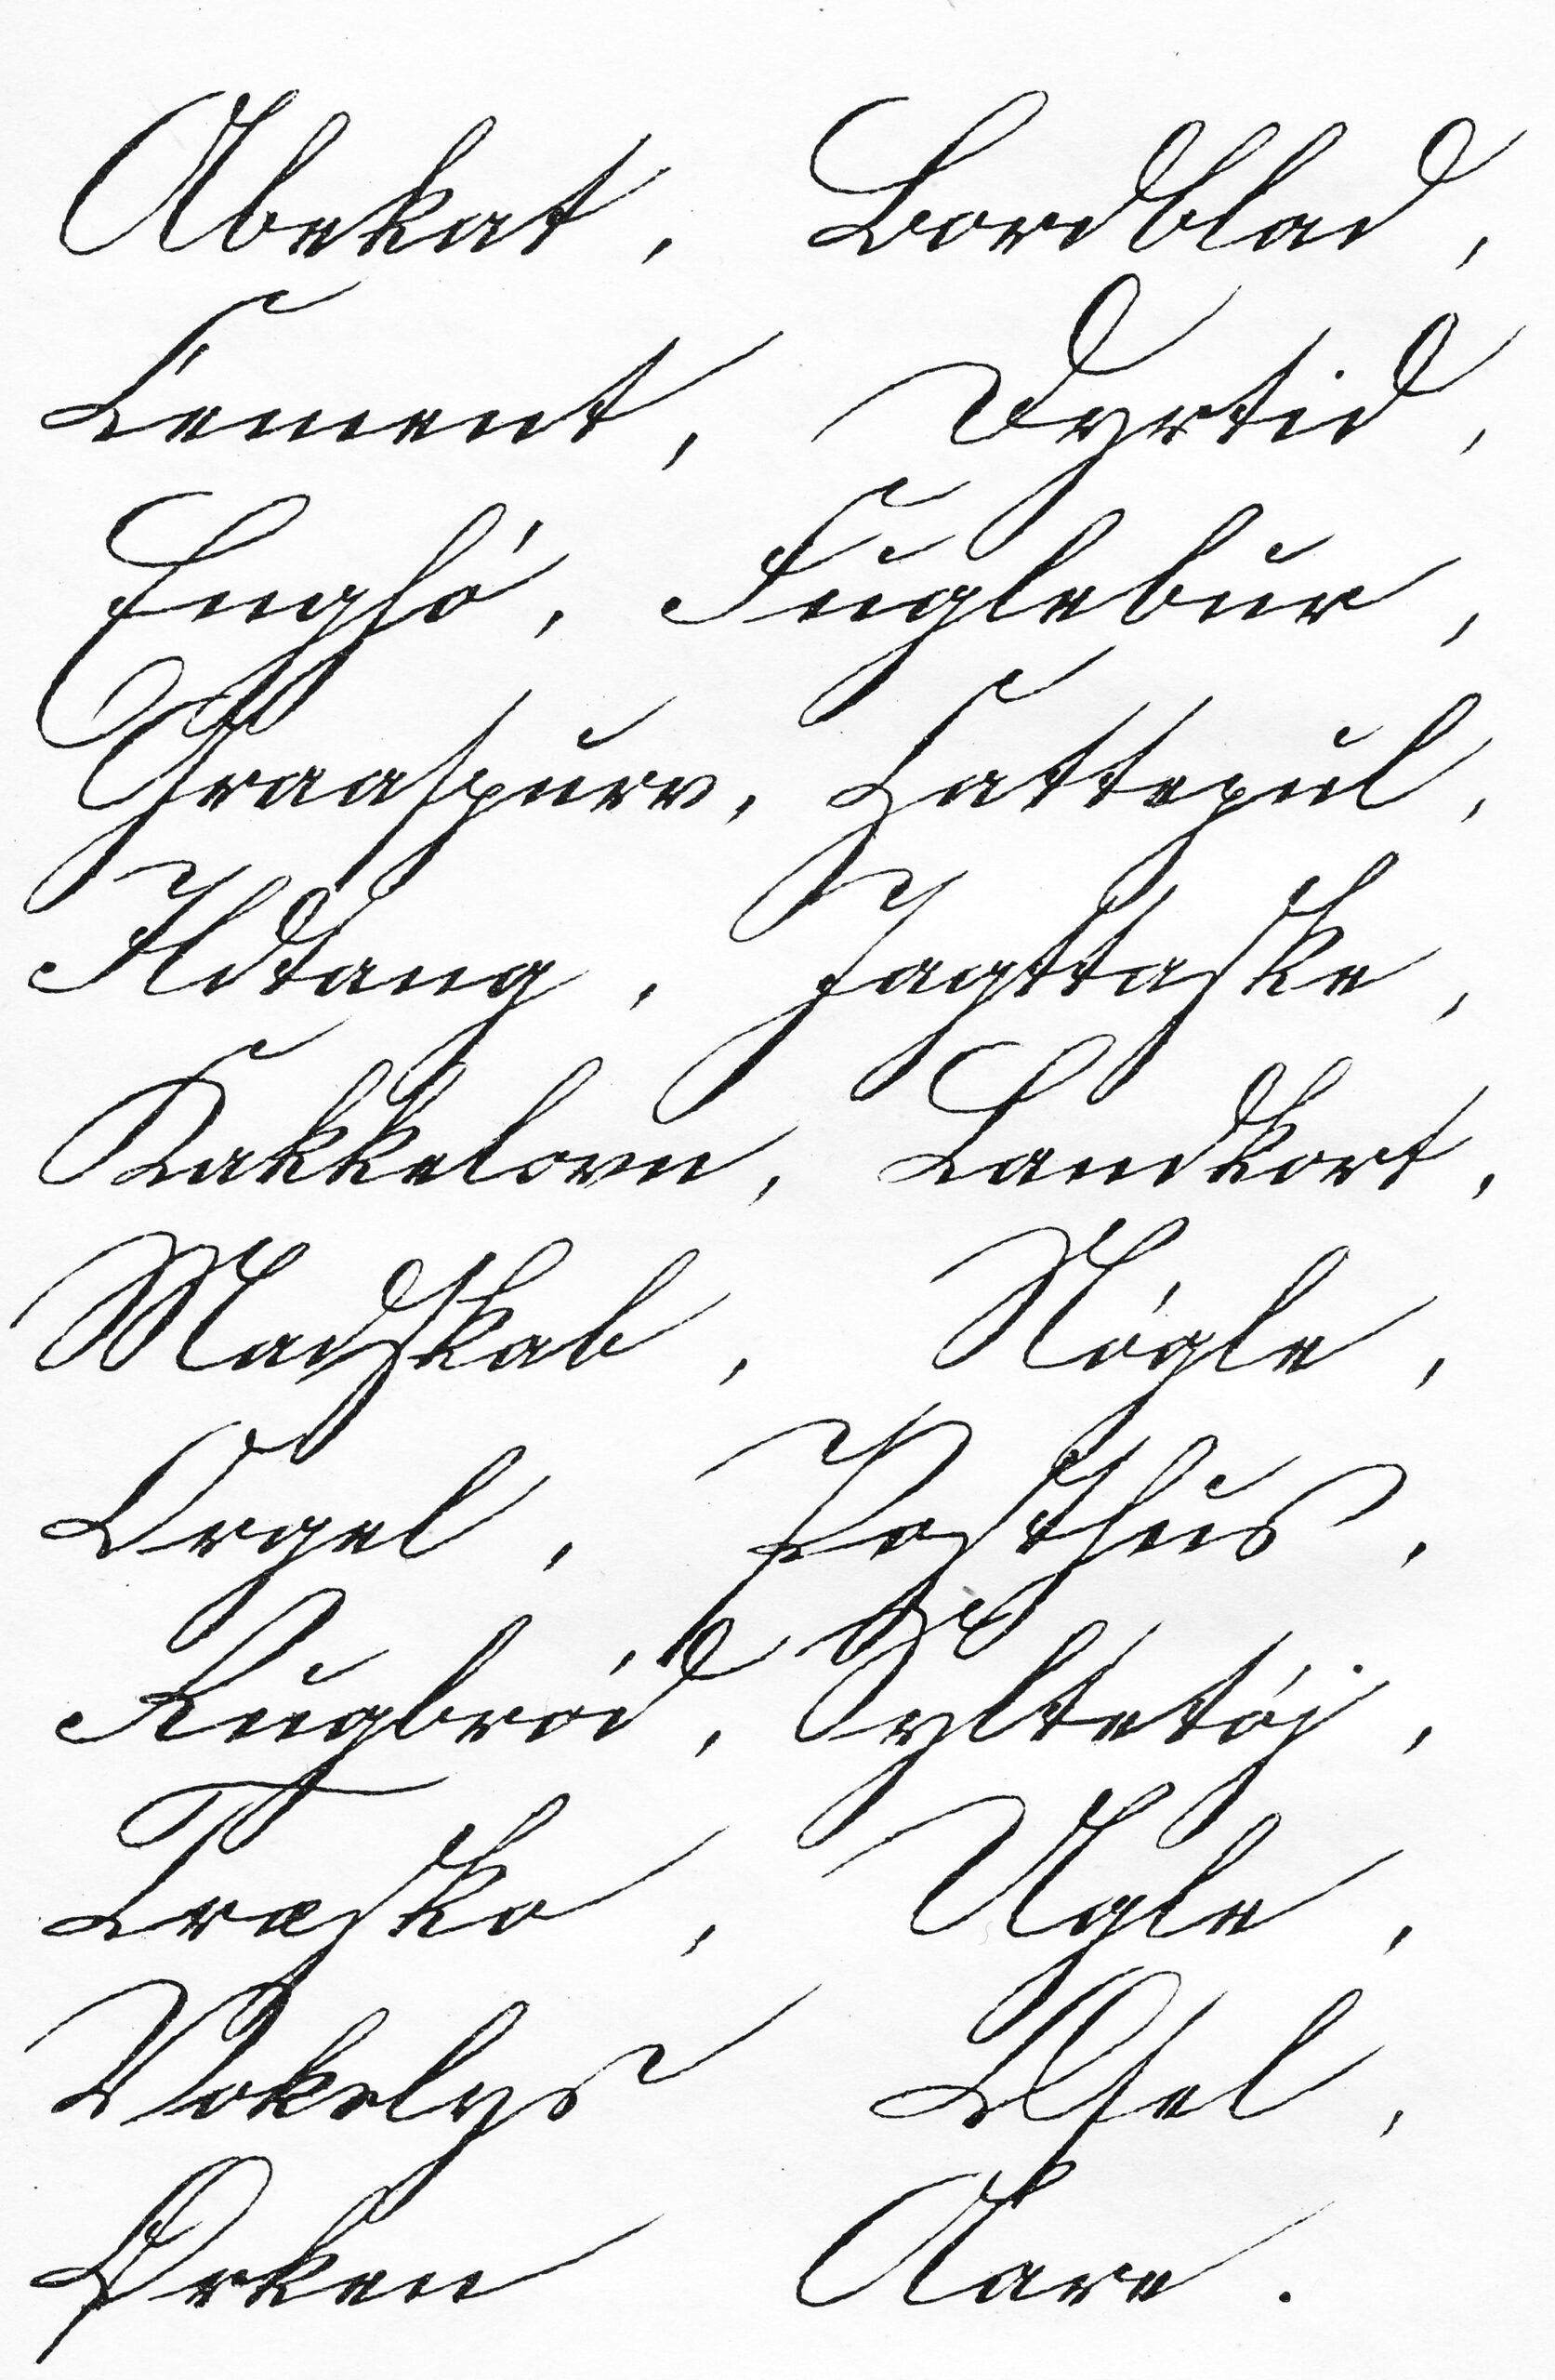 Abekat, Bordblad,
Cement, Dyrtid,
Enghó, Fuglebur,
Graaspurv, Hattepul,
Ildtang, Jagttaske,
Kakkelovn, Landkort,
Madskab, Nógle,
Orgel, Posthus,
Rugbród, Syltetój,
Træsko, Ugle,
Vokslys Æsel,
Ørken Aare.